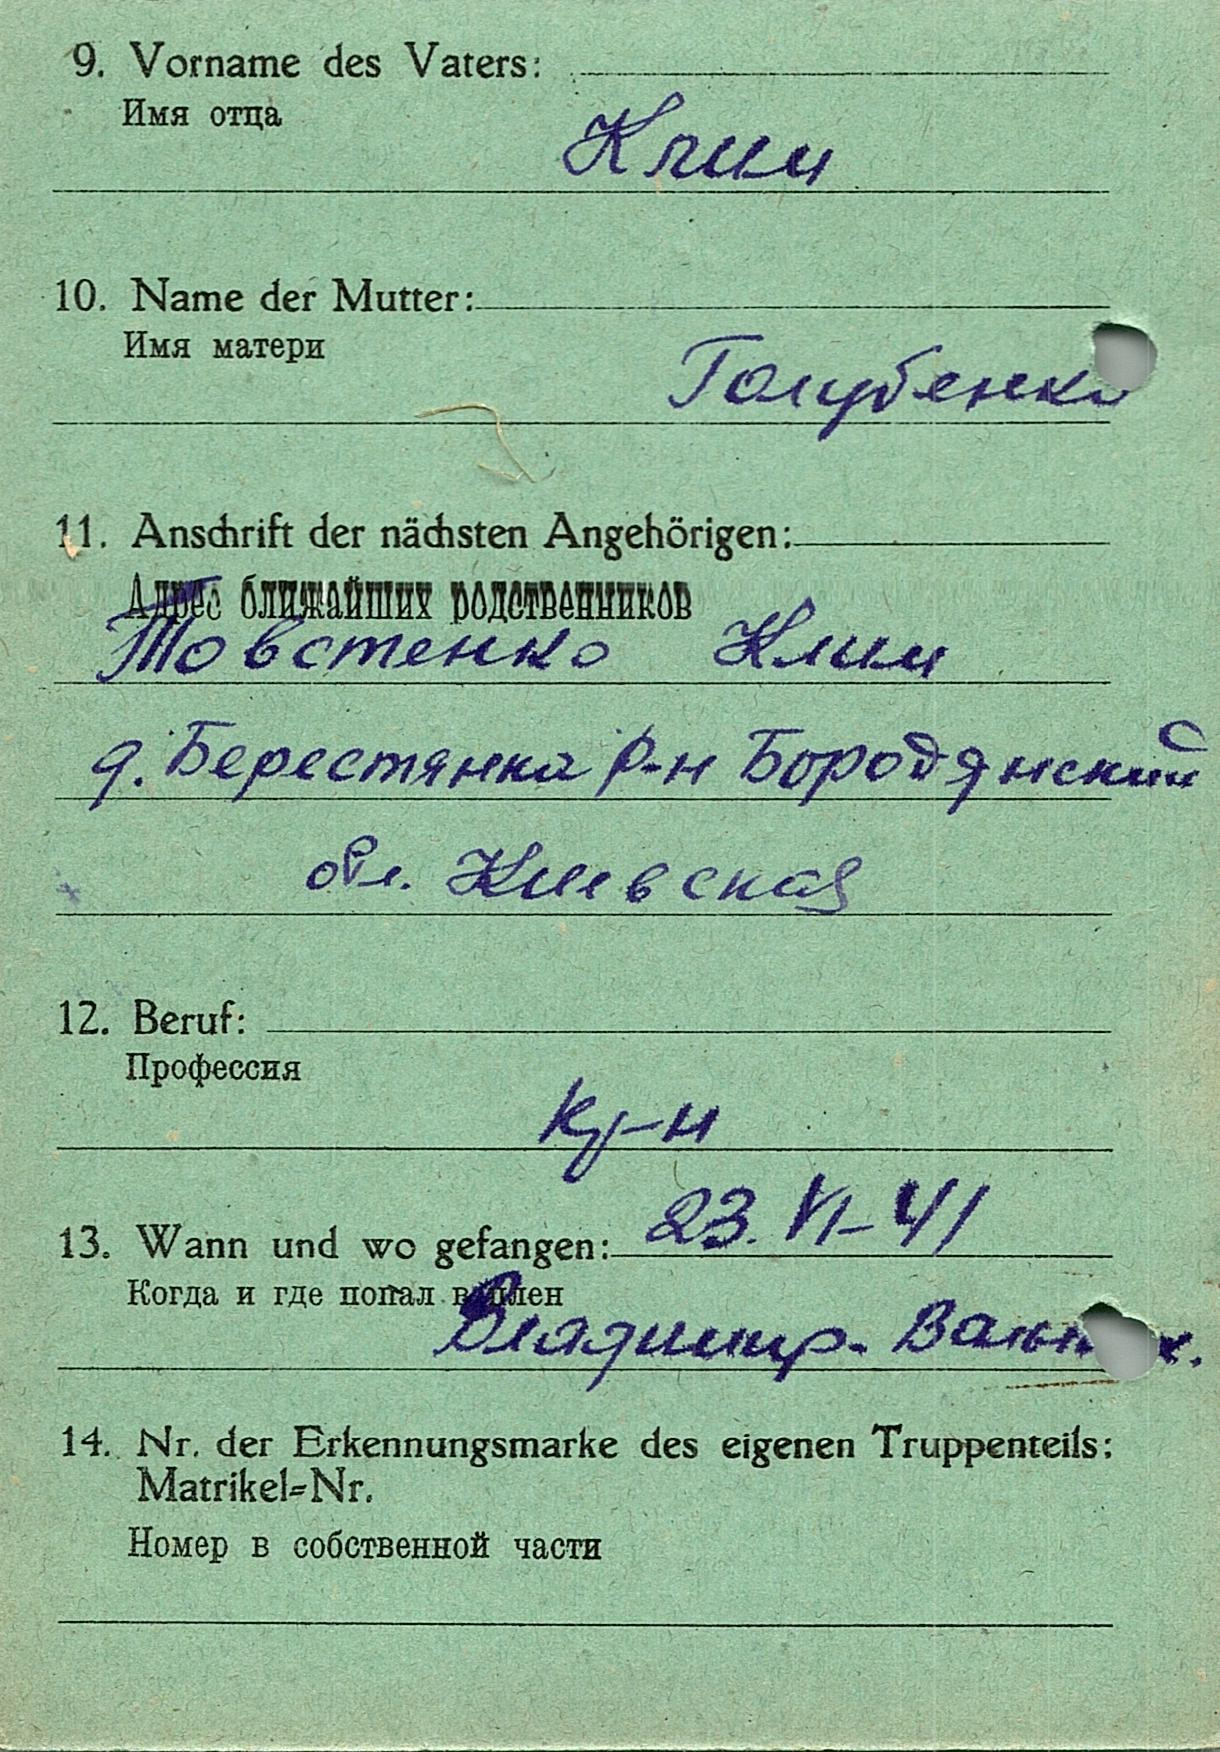 9. Vorname des Vaters:
Имя отца
Клим
10. Name der Mutter:
Имя матери
Голубенко
11. Anschrift der nächsten Angehörigen:
Адрес ближайших родственников
Товстенко Клим
д. Берестянка р-н Бородянский с
обл. Киевская
12. Beruf:
Профессия
кр-н
23. VI-41
13. Wann und wo gefangen:
Когда и где попал в плен
Владимир.
14. Nr. der Erkennungsmarke des eigenen Truppenteils:
Matrikel=Nr.
Номер в собственной части